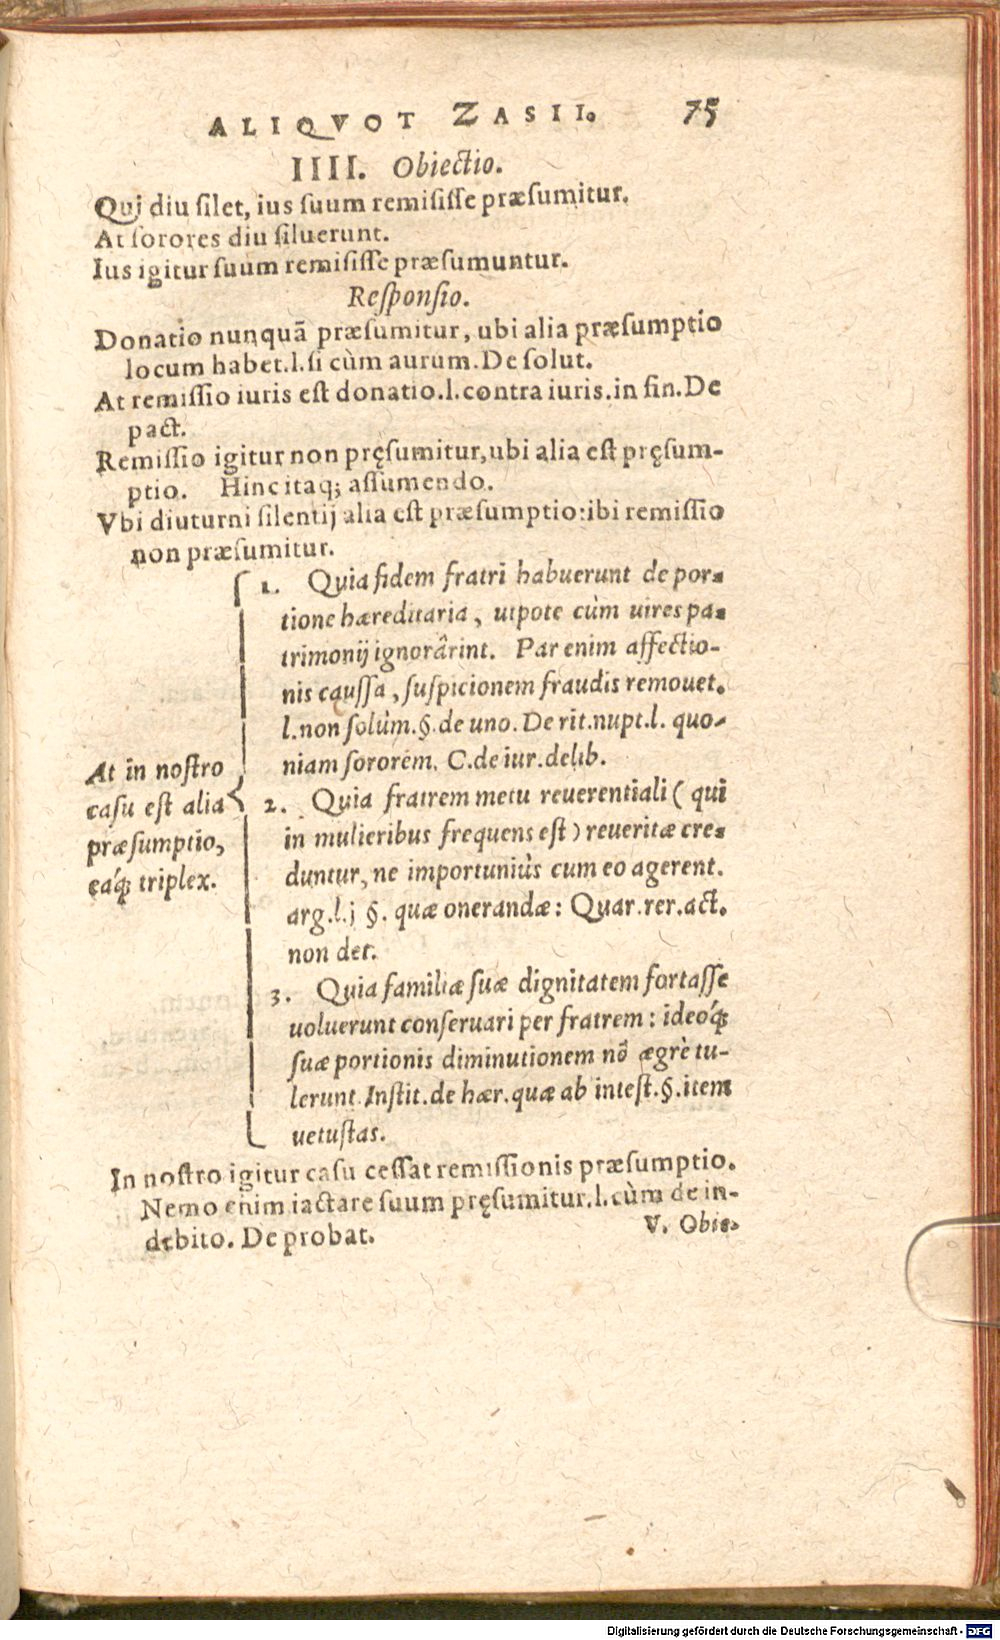 ALIQVOT ZASII. 75
IIII. Obiectio.
Qui diu silet, ius suum remisisse præsumitur.
At sorores diu siluerunt.
Ius igitur suum remisisse præsumuntur.
Responsio.
Donatio nunquã præsumitur, ubi alia præsumptio
locum habet.l.si cùm aurum.De solut.
At remissio iuris est donatio.l.contra iuris.in fin.De
pact.
Remissio igitur non pręsumitur,ubi alia est pręsum-
ptio. Hinc itaq; assumendo.
Vbi diuturni silentij alia est præsumptio:ibi remissio
non præsumitur.
At in nostro
casu est alia
præsumptio,
eáq; triplex.
1. Quia fidem fratri habuerunt de por-
tione hæreditaria, utpote cùm uires pa-
trimonij ignorârint. Par enim affectio-
nis caussa, suspicionem fraudis remouet.
l.non solùm.§.de uno.De rit.nupt.l. quo-
niam sororem. C.de iur.delib.
2. Quia fratrem metu reuerentiali ( qui
in mulieribus frequens est ) reueritæ cre-
duntur, ne importuniùs cum eo agerent.
arg.l.j §. quæ onerandæ: Quar.rer.act.
non det.
3. Quia familiæ suæ dignitatem fortasse
uoluerunt conseruari per fratrem: ideóq;
suæ portionis diminutionem nõ ægrè tu-
lerunt.Instit.de hær.quæ ab intest.§.item
uetustas.
In nostro igitur casu cessat remissionis præsumptio.
Nemo enim iactare suum pręsumitur.l.cùm de in-
debito. De probat.
V. Obie-
Digitalisierung gefördert durch die Deutsche Forschungsgemeinschaft - DFG